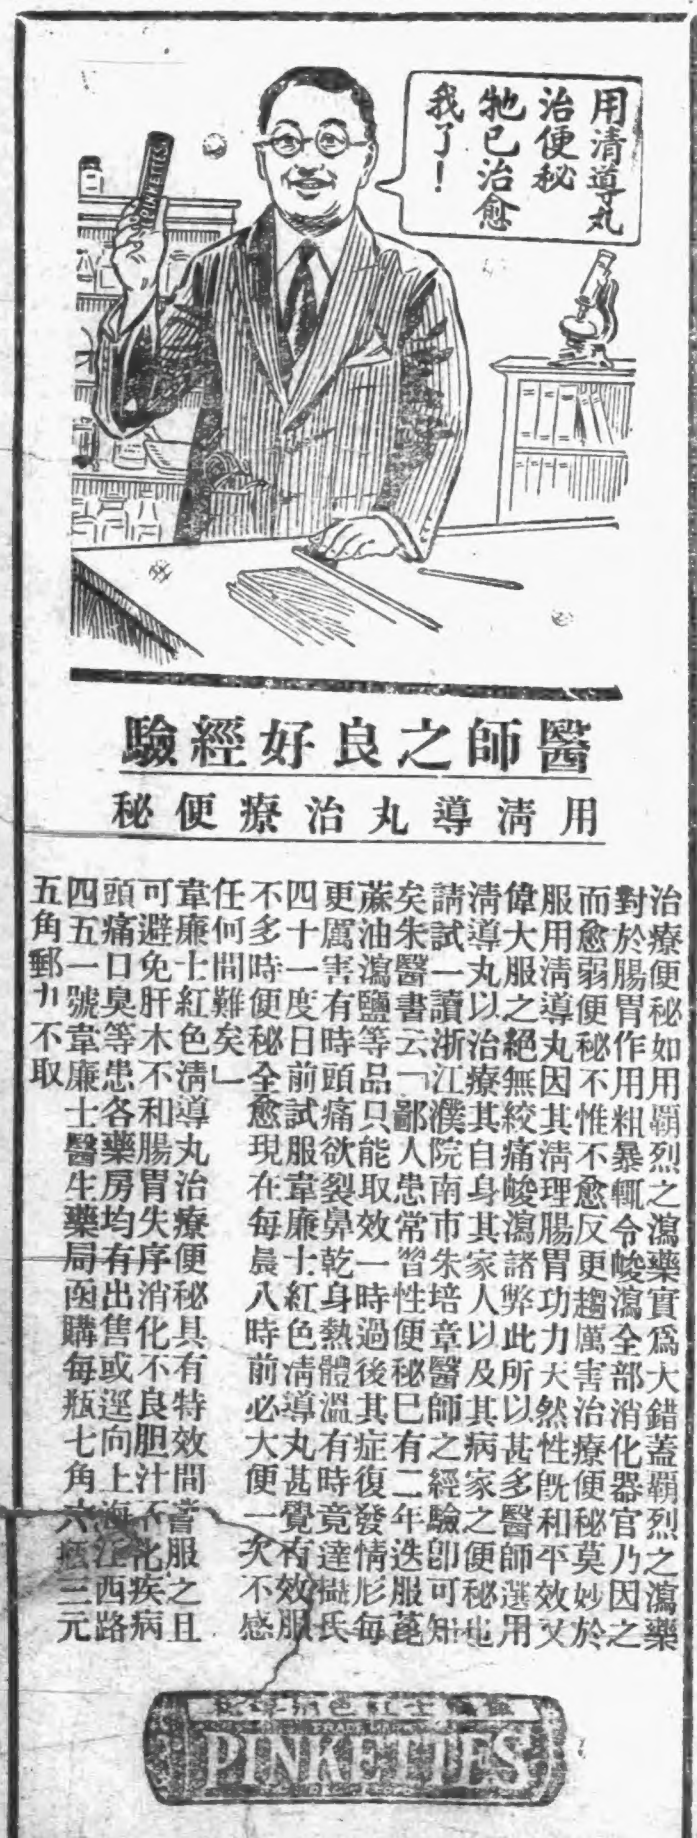 用清導丸
治便秘
牠已治愈
我了！
PINKETTES
醫師之良好經驗
用淸導丸治療便秘
治療便秘如用覇烈之瀉藥實爲大錯蓋覇烈之瀉藥
對於腸胃作用粗暴輒令峻瀉全部消化器官乃因之
而愈弱便秘不惟不愈反更趨厲害治療便秘莫妙於
服用淸導丸因其淸理腸胃功力天然性旣和平效又
偉大服之絕無絞痛峻瀉諸弊此所以甚多醫師選用
淸導丸以治療其自身其家人以及其病家之便秘也
請試一讀浙江濮院南市朱培章醫師之經驗卽可知
矣朱醫書云「鄙人患常習性便秘已有二年迭服蓖
蔴油瀉鹽等品只能取效一時過後其症復發情形每
更厲害有時頭痛欲裂鼻乾身熱體溫有時竟達攝氏
四十一度日前試服韋廉士紅色淸導丸甚覺有效服
不多時便秘全愈現在每晨八時前必大便一次不感
任何問難矣」
韋廉士紅色淸導丸治療便秘具有特效間嘗服之且
可避免肝木不和腸胃失序消化不良胆汁不化疾病
頭痛口臭等患各藥房均有出售或逕向上海江西路
四五一號韋廉士醫生藥局函購每瓶七角六瓶三元
五角郵力不取
TRADE MARK
PINKETTES